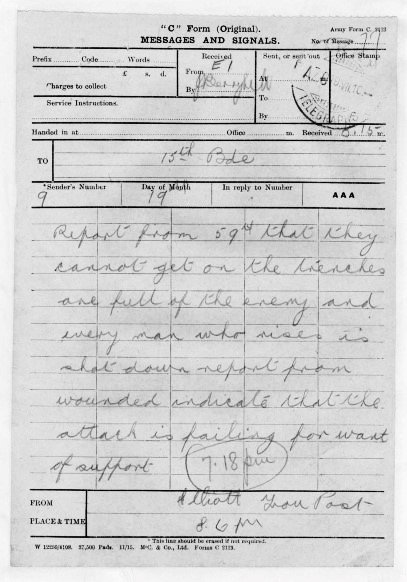 "C" Form (Original).
Army Form C. 2123
MESSAGES AND SIGNALS.
No. of Message
Prefix Code Words
£ s. d.
Charges to collect
Service Instructions.
Received
From E1
By
Sent, or sent out
At
To
By
Office Stamp
TELEGRAPHS
Handed in at Office m. Received 8.15 m.
TO
15th Bde
*Sender's Number
Day of Month
In reply to Number
AAA
9
19
Report from 59th that they
cannot get on the trenches
are full of the enemy and
every man who rises is
shot down report from
wounded indicate that the
attack is failing for want
of support 7.18 pm
FROM
PLACE & TIME
Elliott Iron Post
8.6 pm
* This line should be erased if not required.
W 12226/6108. 37,500 Pads. 11/15. McC. & Co., Ltd. Forms C 2123.